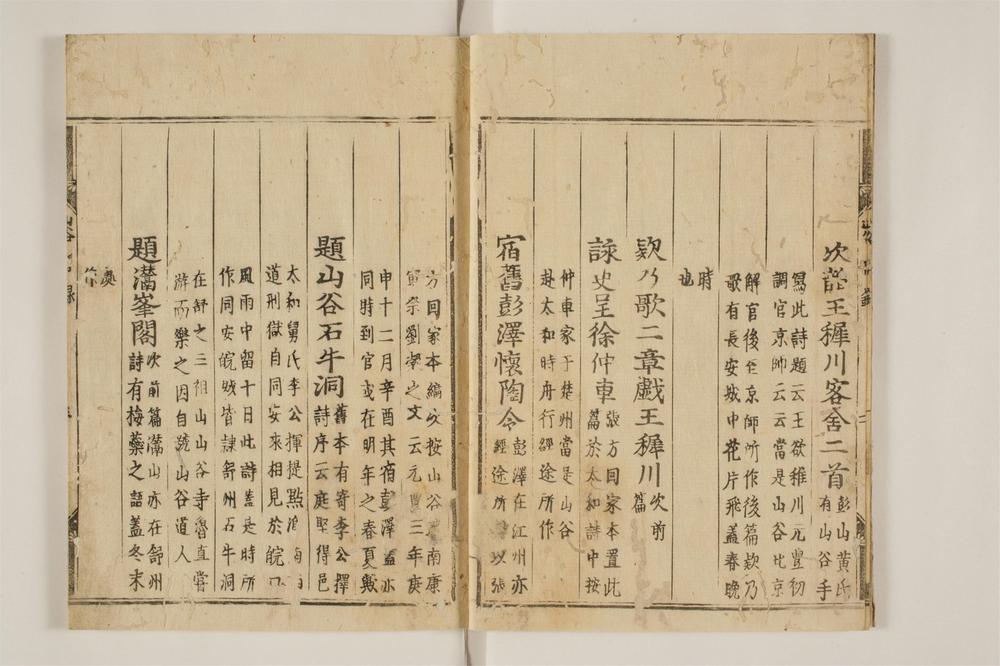 次韵王穉川客舍二首 彭山黄氏有山谷手
寫此詩題云王欲稚川元豊初
調官京師云云當是山谷比京
解官後至京師所作後篇欵乃
歌有長安城中花片飛蓋春晚
時
也
欵乃歌二章戯王穉川 次前篇
詠史呈徐仲車 張方回家本置此篇於太和詩中按
仲車家于楚州當是山谷
赴太和時舟行經途所作
宿舊彭澤懐陶令 彭澤在江州亦經途所 以張
方回家本編次按山谷 南康
祭劉凝之文云元豊三年庚
申十二月辛酉其宿彭澤盖亦
同時到官或在明年之春夏歟
題山谷石牛洞 舊本有寄李公擇詩序云庭堅得邑
太和舅氏李公擇提點
道刑獄自同安來相見於皖口
風雨中留十日此詩蓋是時所
作同安皖城皆隷舒州石牛洞
在舒之三祖山山谷寺魯直嘗
游而樂之因自號山谷道人
題灊峯閣 次前篇灊山亦在舒州詩有梅蘂之語蓋冬末
作